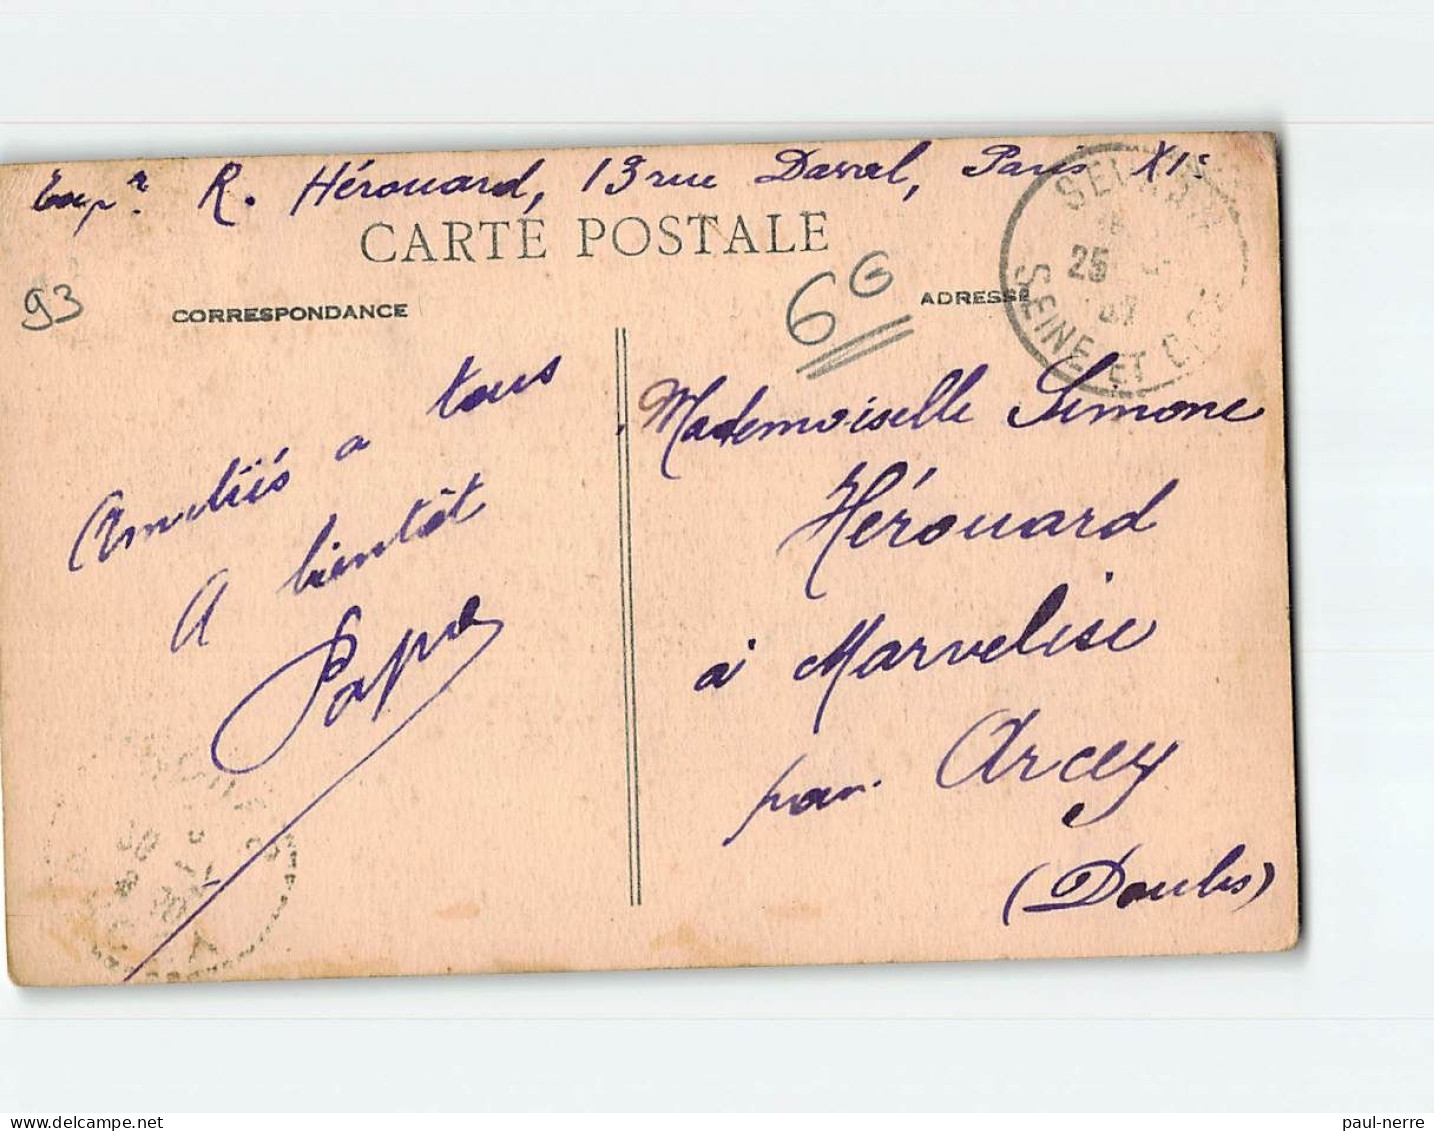 Expr R. Hérouard, 13 rue Daval, Paris XIe
CARTE POSTALE
93
6G
CORRESPONDANCE
ADRESSE
SEVRAN
25
07
SEINE ET OISE
Amitiés a tous
A bientôt
Papa
Mademoiselle Simone
Hérouard
à Marvelise
par Arcey
(Doubs)
paul-nerre